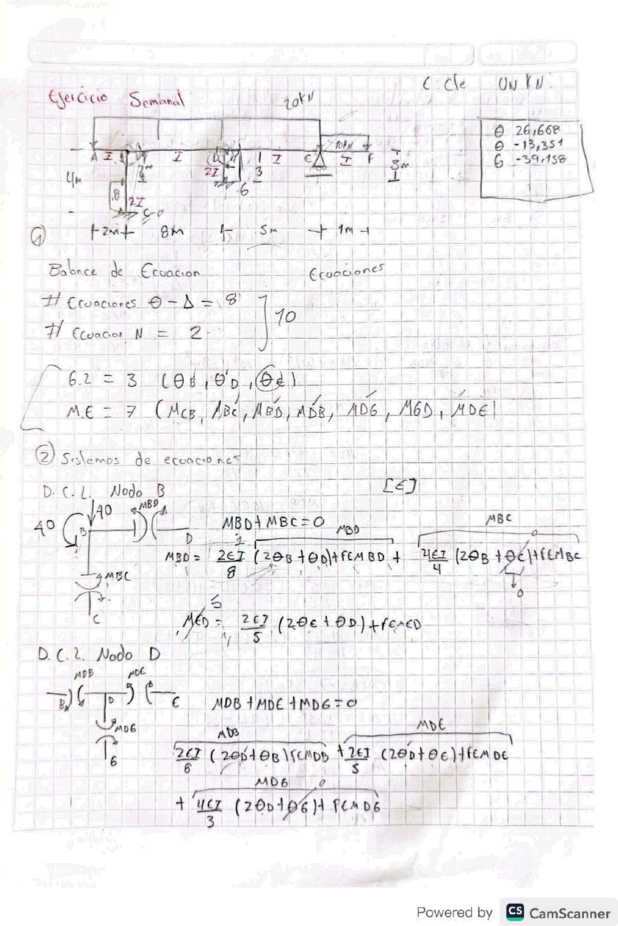 C cte UN KN.
Ejercicio Semanal
20kN
θ 26,668
θ -13,351
6 -39,158
A I B I D I E I F
2I
3
6
3m
4m
2I
C
2m 8m 5m 1m
①
Balance de Ecuacion Ecuaciones
# Ecuaciones θ-Δ = 8
10
# Ecuacion N = 2
6.2 = 3 (θB, θD, θE)
M.E = 7 (MCB, MBC, MBD, MDB, MDG, MGD, MDE)
② Sistemas de ecuaciones
D.C.L. Nodo B [E]
40 40 MBD
B D
MBC
C
MBD+MBC=0
MBD MBC
MBD = 2EI/8 (2θB+θD)+FEMBD + 4EI/4 (2θB+θC)+FEMBC
0
0
MED = 2EI/5 (2θE+θD)+FEMED
D.C.L. Nodo D
MDB MDE
B D E
MDG
6
MDB+MDE+MDG=0
MDB MDE
2EI/8 (2θD+θB)+FEMDB + 2EI/5 (2θD+θE)+FEMDE
MDG 0
+ 4EI/3 (2θD+θG)+FEMDG
Powered by CS CamScanner